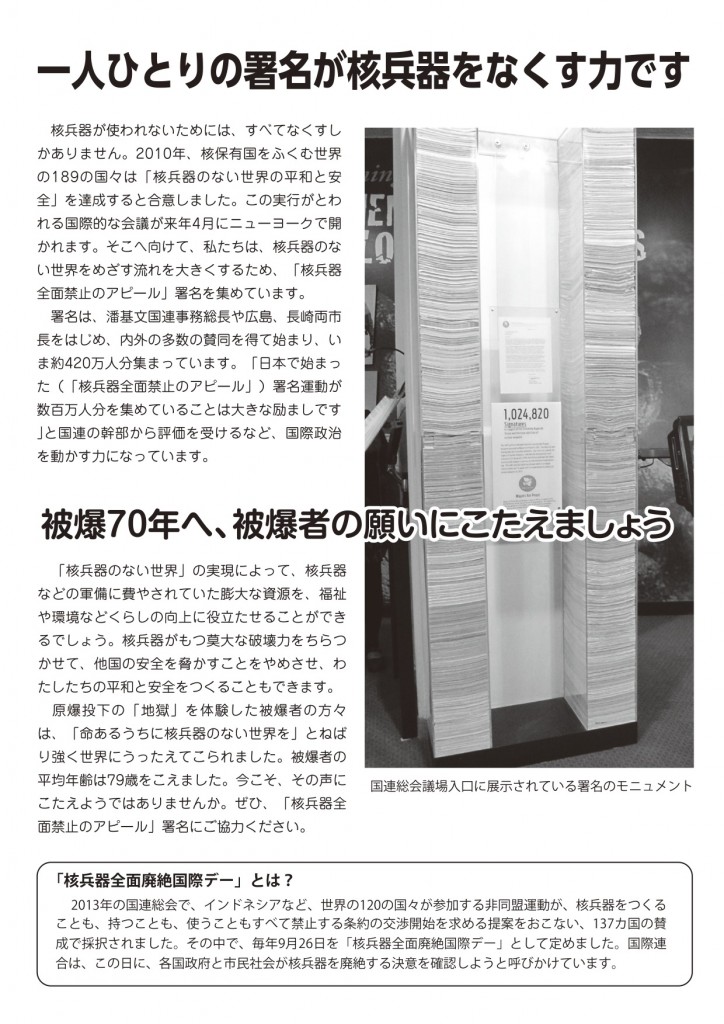 一人ひとりの署名が核兵器をなくす力です
核兵器が使われないためには、すべてなくすし
かありません。2010年、核保有国をふくむ世界
の189の国々は「核兵器のない世界の平和と安
全」を達成すると合意しました。この実行がとわ
れる国際的な会議が来年4月にニューヨークで開
かれます。そこへ向けて、私たちは、核兵器のな
い世界をめざす流れを大きくするため、「核兵器
全面禁止のアピール」署名を集めています。
署名は、潘基文国連事務総長や広島、長崎両市
長をはじめ、内外の多数の賛同を得て始まり、い
ま約420万人分集まっています。「日本で始まっ
た（「核兵器全面禁止のアピール」）署名運動が
数百万人分を集めていることは大きな励ましです
」と国連の幹部から評価を受けるなど、国際政治
を動かす力になっています。
1,024,820
Signatures
被爆70年へ、被爆者の願いにこたえましょう
「核兵器のない世界」の実現によって、核兵器
などの軍備に費やされていた膨大な資源を、福祉
や環境などくらしの向上に役立たせることができ
るでしょう。核兵器がもつ莫大な破壊力をちらつ
かせて、他国の安全を脅かすことをやめさせ、わ
たしたちの平和と安全をつくることもできます。
原爆投下の「地獄」を体験した被爆者の方々
は、「命あるうちに核兵器のない世界を」とねば
り強く世界にうったえてこられました。被爆者の
平均年齢は79歳をこえました。今こそ、その声に
こたえようではありませんか。ぜひ、「核兵器全
面禁止のアピール」署名にご協力ください。
国連総会議場入口に展示されている署名のモニュメント
「核兵器全面廃絶国際デー」とは？
2013年の国連総会で、インドネシアなど、世界の120の国々が参加する非同盟運動が、核兵器をつくる
ことも、持つことも、使うこともすべて禁止する条約の交渉開始を求める提案をおこない、137カ国の賛
成で採択されました。その中で、毎年9月26日を「核兵器全面廃絶国際デー」として定めました。国際連
合は、この日に、各国政府と市民社会が核兵器を廃絶する決意を確認しようと呼びかけています。